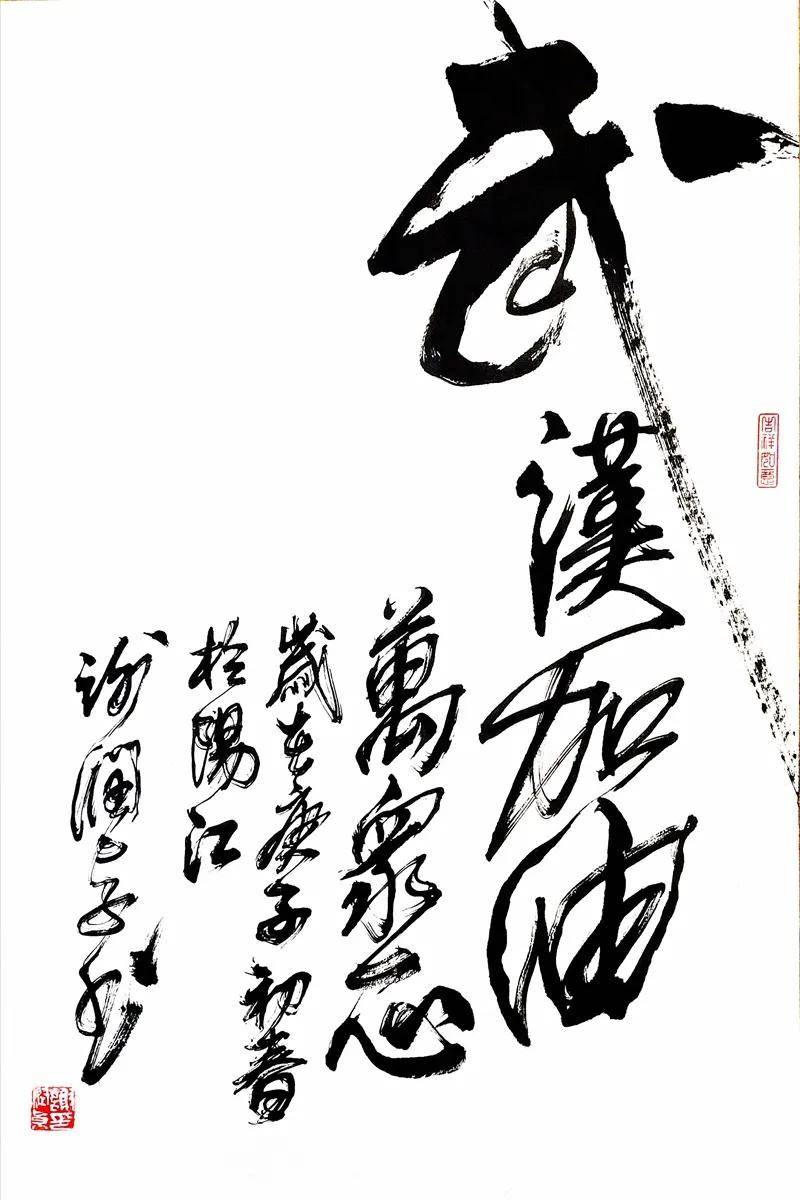 吉祥如意
武漢加油
萬衆一心
歲在庚子初春
於陽江
謝潤